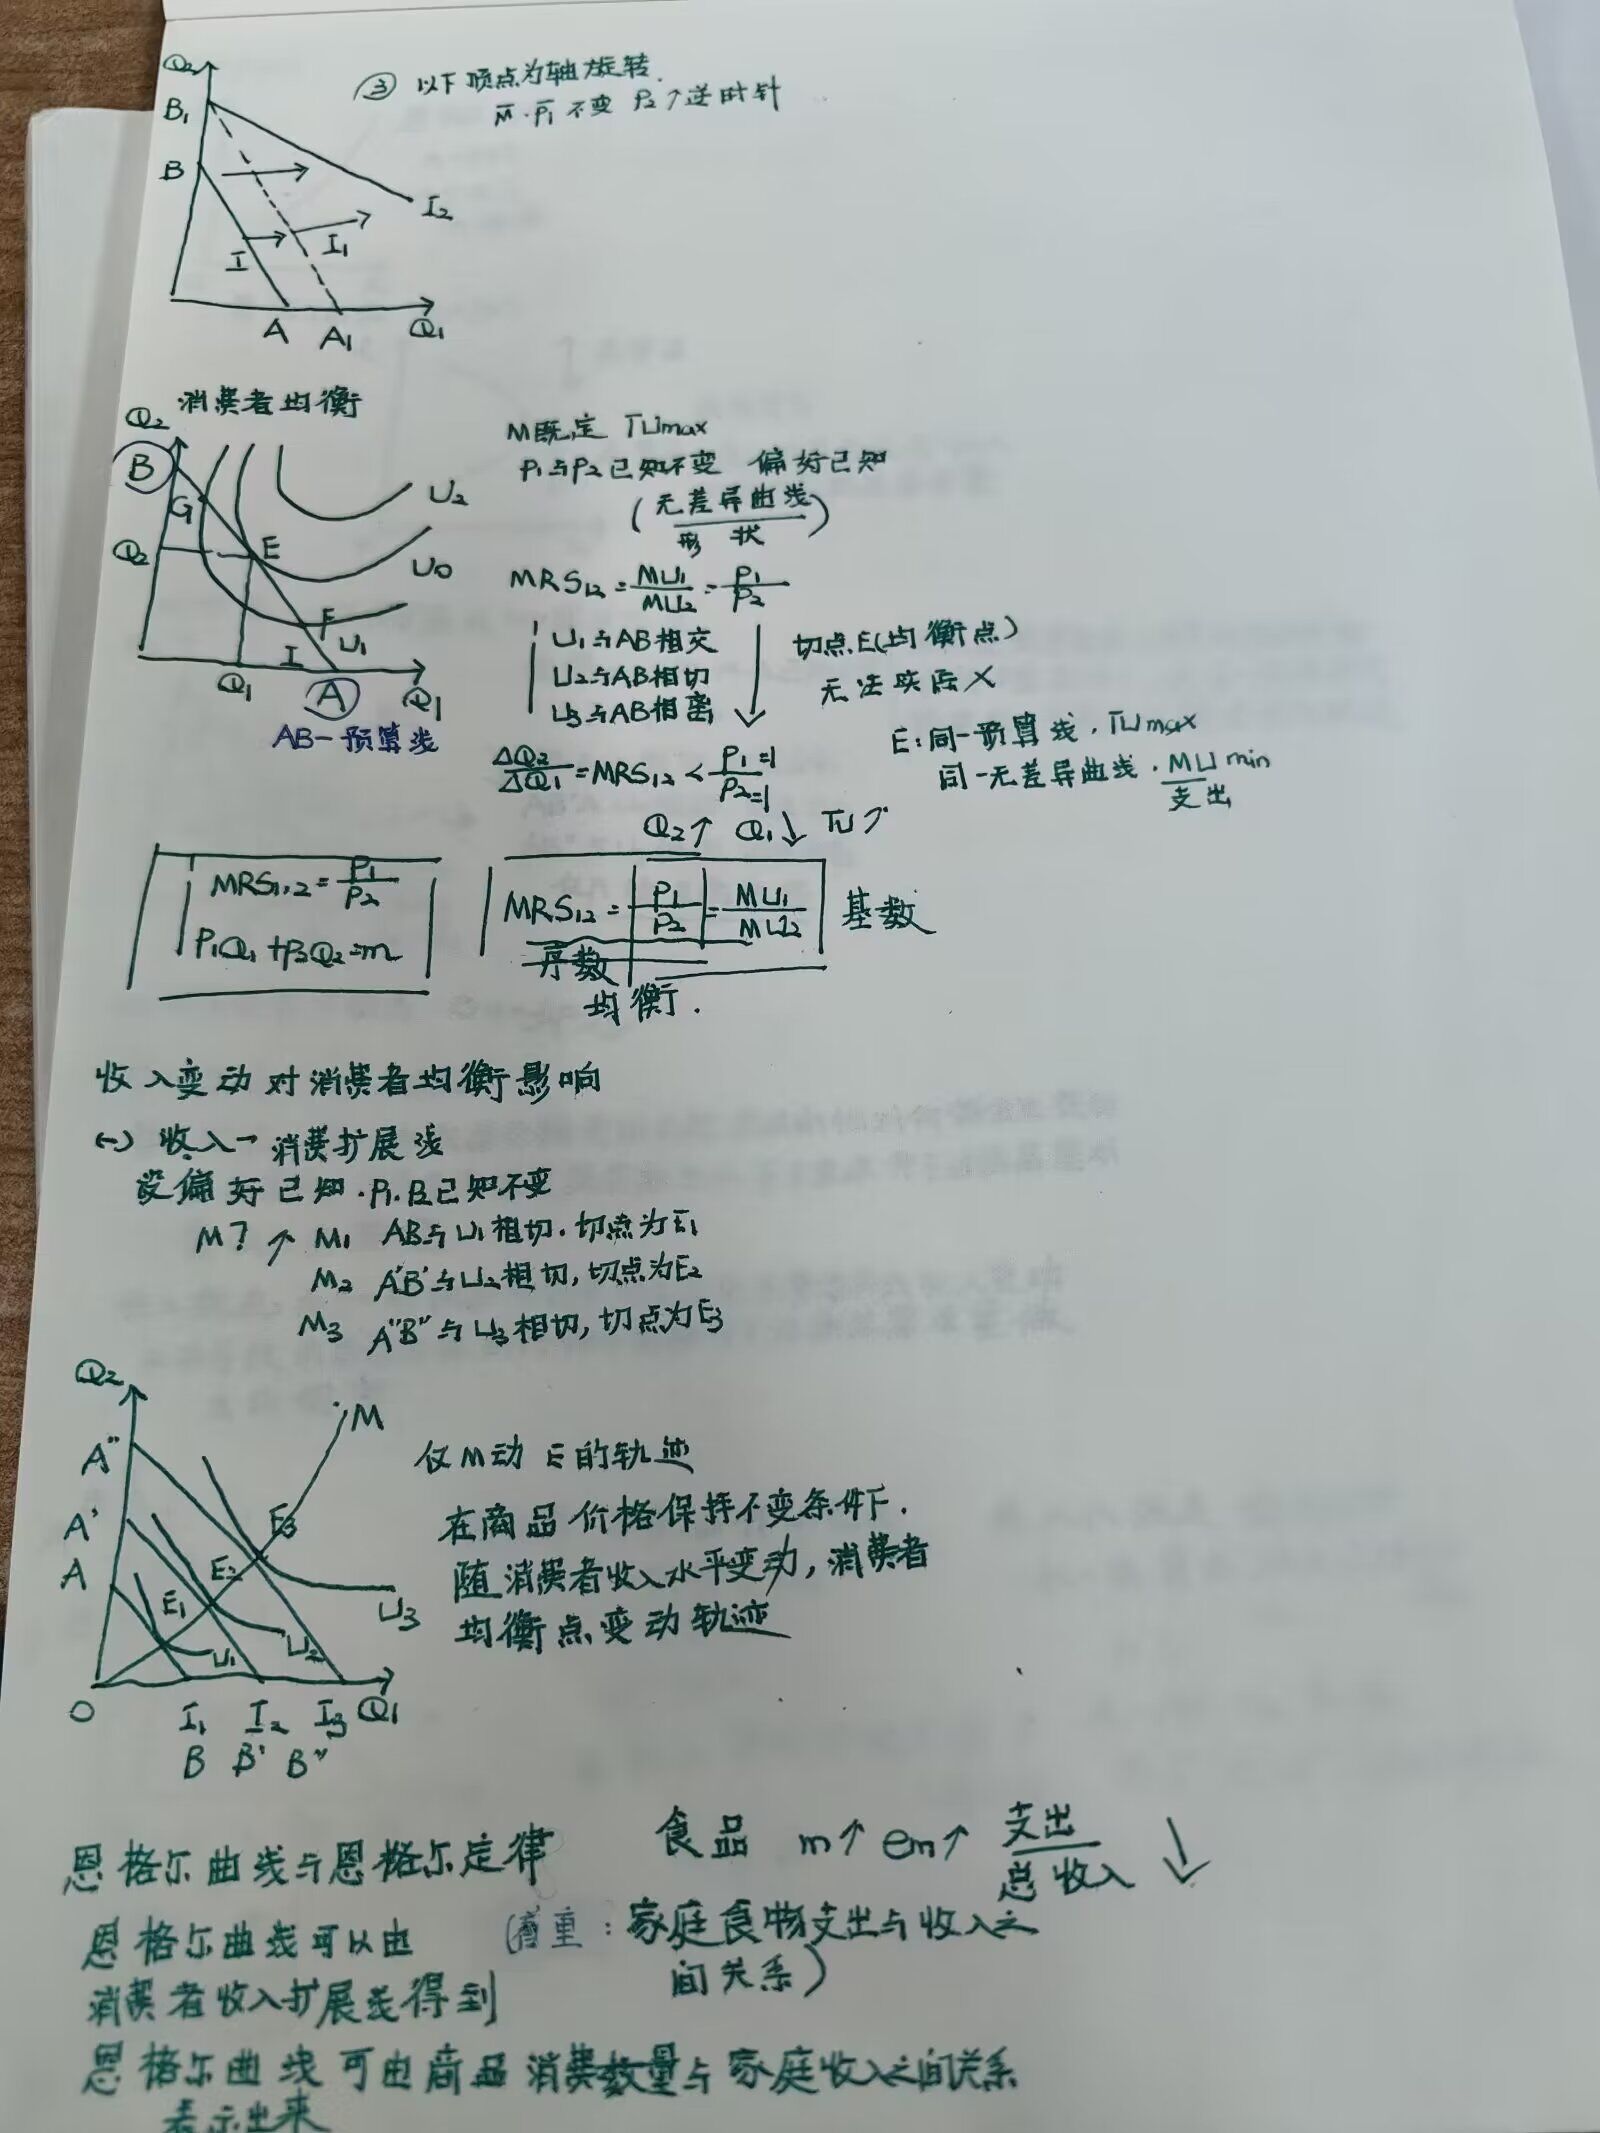 ③ 以下顶点为轴旋转.
M̄·P̄₁不变 P₂↑逆时针
Q₂
B₁
B
I₂
I₁
I
A
A₁
Q₁
消费者均衡
Q₂
B
G
U₂
Q₂
E
U₀
F
U₁
I
Q₁
A
Q₁
AB-预算线
M既定 TUmax
P₁与P₂已知不变 偏好已知
(无差异曲线
形状)
MRS₁₂=MU₁/MU₂=P₁/P₂
U₁与AB相交
U₂与AB相切
U₃与AB相离
切点E(均衡点)
无法实际×
E:同一预算线·TUmax
同一无差异曲线·MUmin
支出
ΔQ₂/ΔQ₁=MRS₁₂<P₁=1/P₂=1
Q₂↑ Q₁↓ TU↗
MRS₁,₂=P₁/P₂
P₁Q₁+P₃Q₂=m
MRS₁₂=P₁/P₂=MU₁/MU₂ 基数
序数
均衡.
收入变动对消费者均衡影响
(一) 收入一消费扩展线
设偏好已知·P₁.P₂已知不变
M?↗ M₁ AB与U₁相切.切点为E₁
M₂ A'B'与U₂相切,切点为E₂
M₃ A"B"与U₃相切,切点为E₃
Q₂
M
A"
E₃
A'
E₂
A
E₁
U₃
U₂
U₁
O
I₁ I₂ I₃ Q₁
B B' B"
仅M动 E的轨迹
在商品价格保持不变条件下.
随消费者收入水平变动,消费者
均衡点变动轨迹
恩格尔曲线与恩格尔定律
食品 m↑ em↑ 支出/总收入 ↓
恩格尔曲线可以由
消费者收入扩展线得到
重:家庭食物支出与收入之
间关系)
恩格尔曲线可由商品消费数量与家庭收入之间关系
表示出来